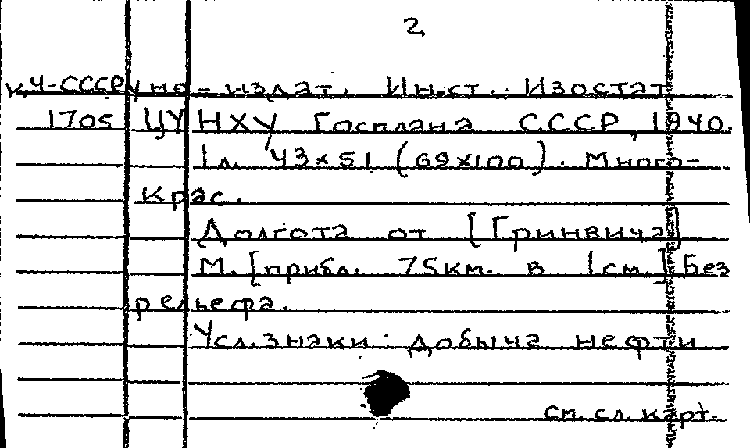 2
К4-СССР уно-издат. Инст. Изостат
1705 ЦУНХУ Госплана СССР, 1940.
1 л. 43×51 (69×100). Много-
крас.
Долгота от [Гринвича]
М. [прибл. 75км. в 1см.] Без
рельефа.
Усл. знаки: добыча нефти
см. сл. карт.